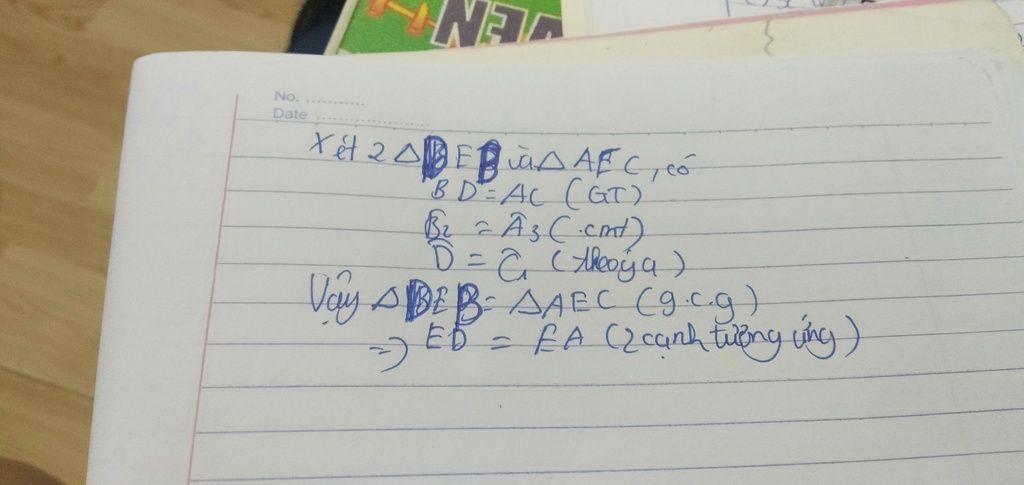 VEN
No. ............
Date ......................
Xét 2 △BEB và △AEC, có
BD = AC (GT)
B̂2 = Â3 (cmt)
D̂ = Ĉ1 (theo ý a)
Vậy △BEB = △AEC (g.c.g)
=> ED = EA (2 cạnh tương ứng)